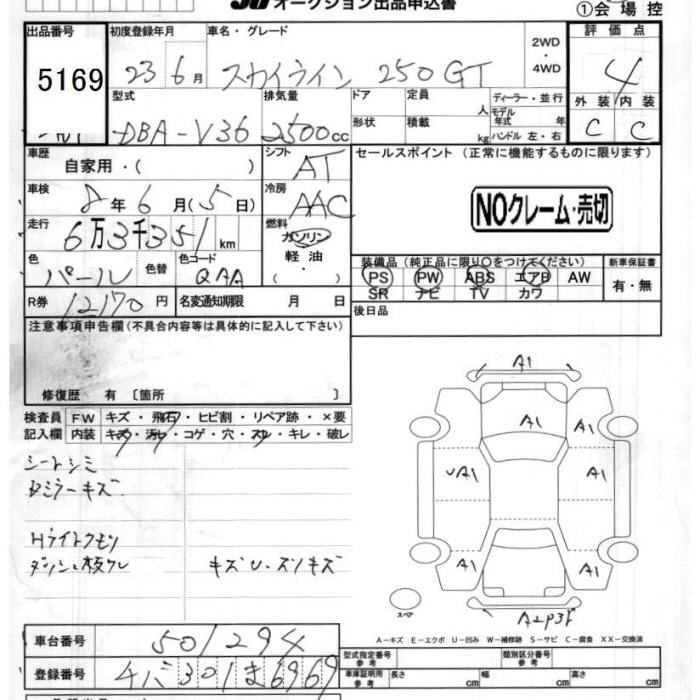 オークション出品申込書
①会場控
出品番号
5169
初度登録年月
23 6月
車名・グレード
スカイライン 250GT
2WD
・
4WD
評価点
4
外装 内装
C C
型式
DBA-V36
排気量
2500cc
ドア
形状
定員
人
積載
kg
ディーラー・並行
モデル年式 年
ハンドル 左・右
車歴
自家用・( )
シフト
AT
車検
8年6月(5日)
冷房
AAC
走行
6万3千351km
燃料
ガソリン
軽油・
( )
色
パール
色替
色コード
QAA
R券
12170円
名変通知期限 月 日
セールスポイント (正常に機能するものに限ります)
NOクレーム・売切
装備品(純正品に限り○をつけてください)
PS PW ABS エアB AW
SR ナビ TV カワ
新車保証書
有・無
後日品
注意事項申告欄(不具合内容等は具体的に記入して下さい)
修復歴 有〔箇所 〕
検査員記入欄
FW キズ・飛石・ヒビ割・リペア跡・×要
内装 キズ・汚れ・コゲ・穴・スレ・キレ・破レ
シートシミ
Bミラーキズ
Hライトクモリ
キズU・スリキズ
A1
A1
A1
UA1
A1
A1
A1
スペア
A-キズ E-エクボ U-凹み W-補修跡 S-サビ C-腐食 XX-交換済
車台番号
501294
登録番号
301 ま 6969
型式指定番号
参考
類別区分番号
参考
車庫証明用
参考
長さ cm
幅 cm
高さ cm